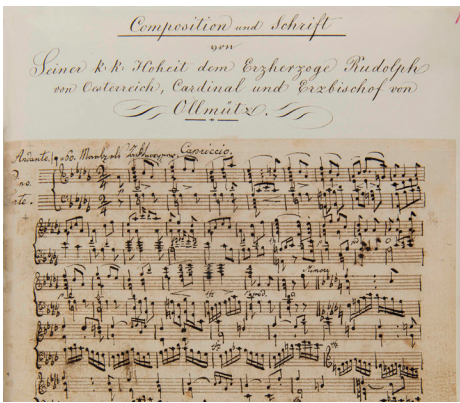 Composition und Schrift
von
Seiner k. k. Hoheit dem Erzherzoge Rudolph
von Oesterreich, Cardinal und Erzbischof von
Ollmütz.
Andante. Capriccio.
Minore